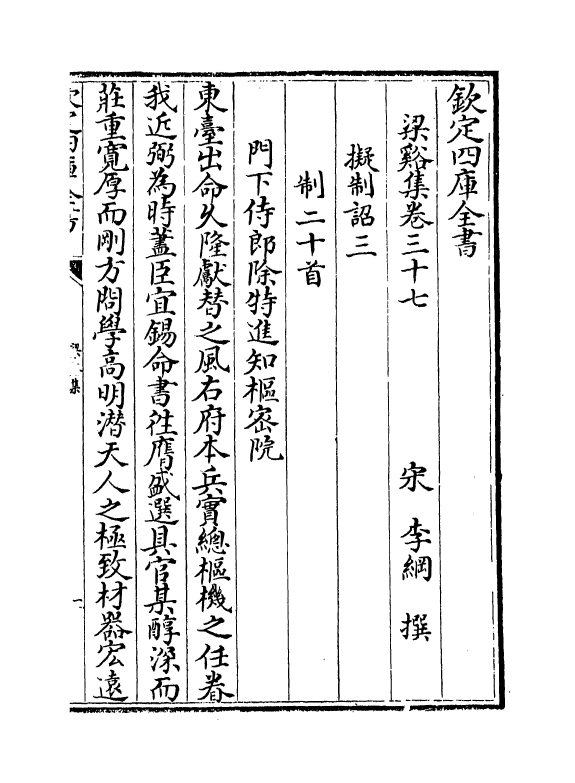 欽定四庫全書
梁谿集卷三十七 宋 李綱 撰
擬制詔三
制二十首
門下侍郎除特進知樞密院
東臺出命久隆獻替之風右府本兵實總樞機之任眷
我近弼為時藎臣宜錫命書徃膺盛選具官某醇深而
莊重寬厚而剛方問學高明潜天人之極致材器宏遠
欽定四庫全書
梁谿集
一